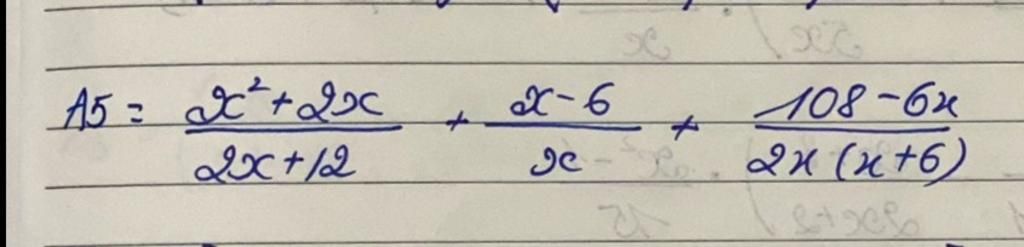 A5 = \frac{x^2+2x}{2x+12} + \frac{x-6}{x} + \frac{108-6x}{2x(x+6)}